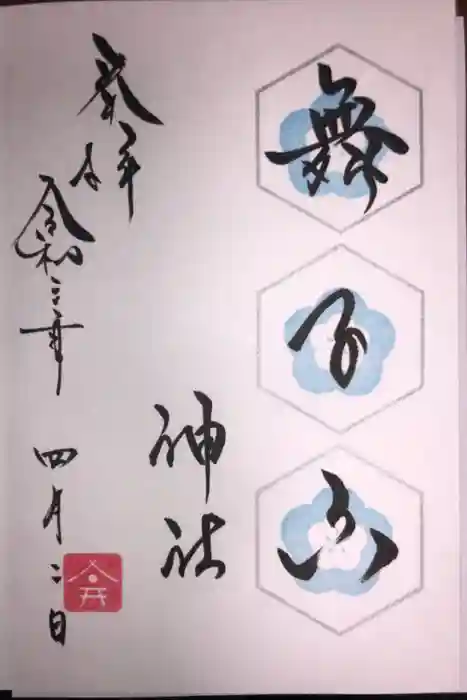 舞子六
神社
奉拝
令和三年
四月二日